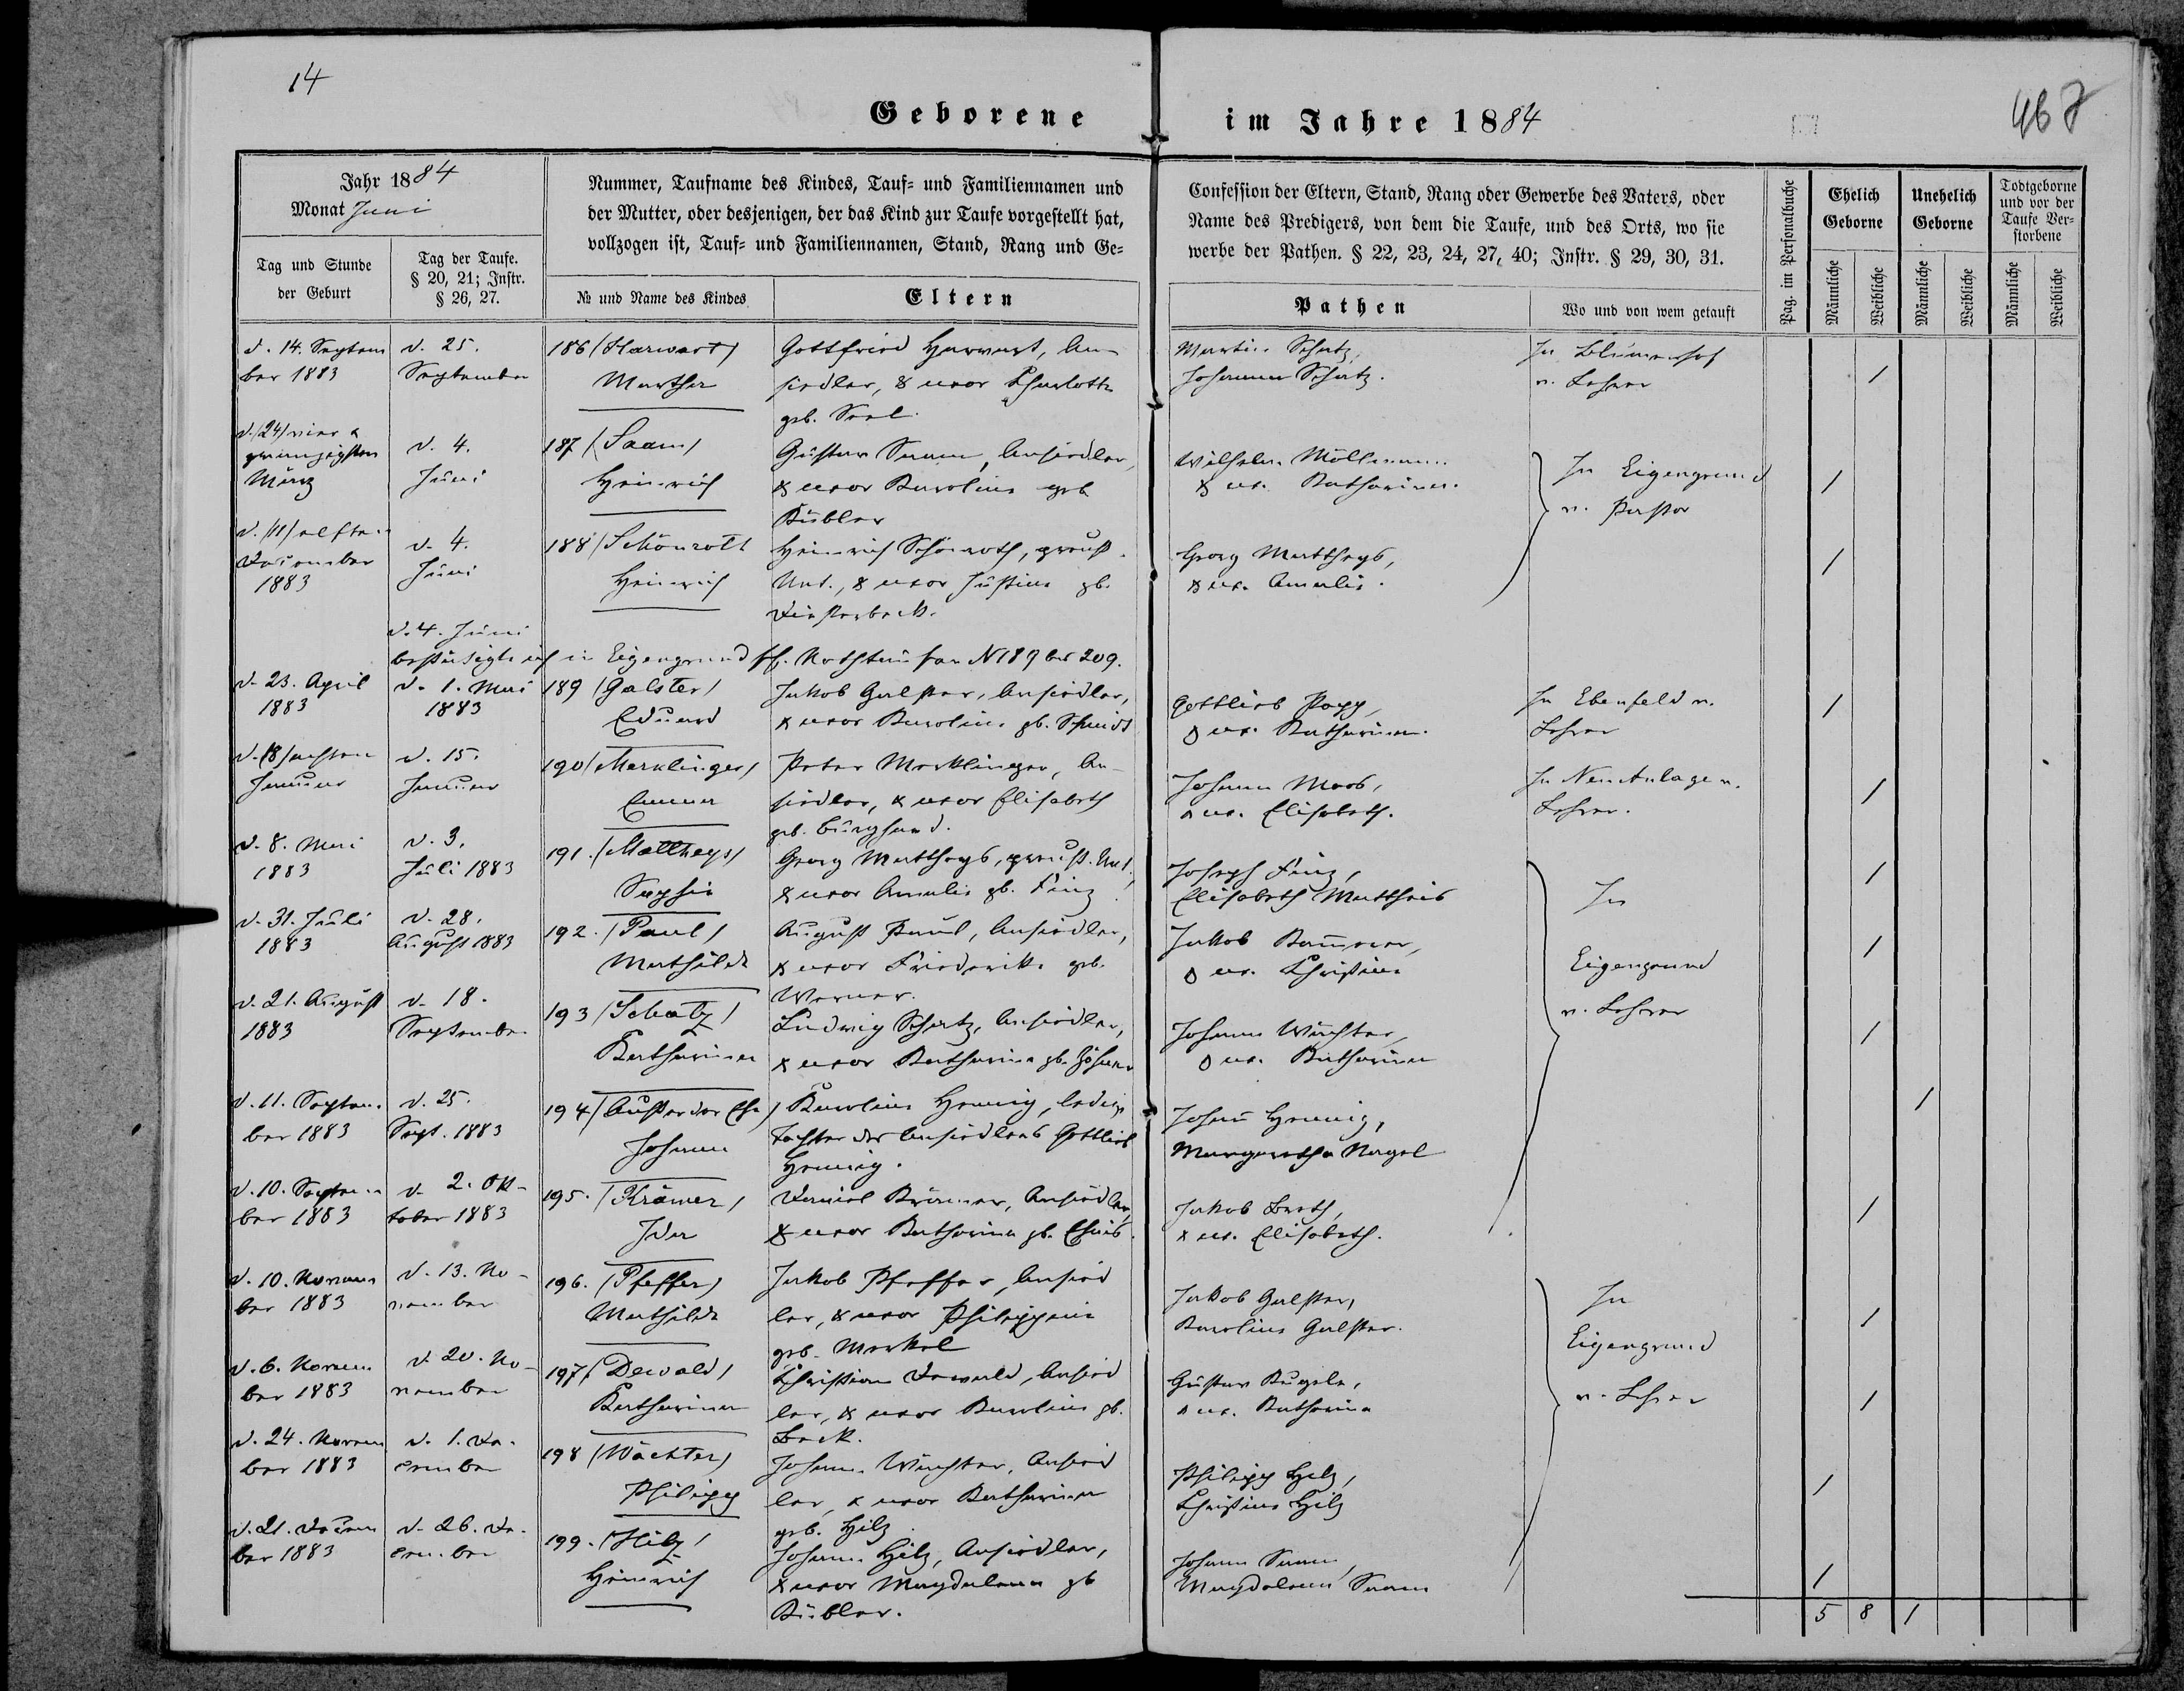 14
Geborene im Jahre 1884
467
Jahr 1884
Monat Juni
Tag und Stunde
der Geburt
Tag der Taufe.
§ 20, 21; Instr.
§ 26, 27.
Nummer, Taufname des Kindes, Tauf- und Familiennamen und
der Mutter, oder desjenigen, der das Kind zur Taufe vorgestellt hat,
vollzogen ist, Tauf- und Familiennamen, Stand, Rang und Ge-
№ und Name des Kindes
Eltern
Confession der Eltern, Stand, Rang oder Gewerbe des Vaters, oder
Name des Predigers, von dem die Taufe, und des Orts, wo sie
werbe der Pathen. § 22, 23, 24, 27, 40; Instr. § 29, 30, 31.
Pathen
Wo und von wem getauft
Pag. im Personalbuche
Ehelich
Geborne
Unehelich
Geborne
Todtgeborne
und vor der
Taufe Ver-
storbene
Männliche
Weibliche
Männliche
Weibliche
Männliche
Weibliche
d. 14. Septem
ber 1883
d. 25.
September
186 (Harwart)
Martha
Gottfried Harwart, An-
siedler, & uxor Charlotte
geb. Seel.
Martin Schatz,
Johanna Schatz.
In Blumenhof
v. Lehrer
1
d. (24) vier &
zwanzigsten
März
d. 4.
Juni
187 (Saam)
Heinrich
Gustav Saam, Ansiedler,
& uxor Karoline geb.
Kübler
Wilhelm Möllmann
& ux. Katharina.
In Eigengrund
v. Pastor
1
d. (11) elften
December
1883
d. 4.
Juni
188 (Schönroth
Heinrich
Heinrich Schönroth, preuß.
Unt., & uxor Justine gb.
Diesterbeck.
Georg Mattheys,
& ux. Amalie.
1
d. 4. Juni
bestätigte ich in Eigengrund ff. Nothtaufen N 189 bis 209.
d. 23. April
1883
d. 1. Mai
1883
189 (Galster)
Eduard
Jakob Galster, Ansiedler,
& uxor Karoline gb. Schmidt
Gottlieb Popp,
& ux. Katharina.
In Ebenfeld v.
Lehrer
1
d. (8) achten
Januar
d. 15.
Januar
190 (Merklinger)
Emma
Peter Merklinger, An-
siedler, & uxor Elisabeth
geb. Burghard.
Johann Moos,
& ux. Elisabeth.
In Neu Anlage v.
Lehrer.
1
d. 8. Mai
1883
d. 3.
Juli 1883
191. (Mattheys)
Sophie
Georg Mattheys, preuß. Unt.,
& uxor Amalie gb. Finz
Joseph Finz,
Elisabeth Mattheis
In
1
d. 31. Juli
1883
d. 28.
August 1883
192. (Paul)
Mathilde
August Paul, Ansiedler,
& uxor Friederike geb.
Werner.
Jakob Kammerer,
& ux. Christine
Eigengrund
v. Lehrer
1
d. 21. August
1883
d. 18.
September
193 (Schatz)
Katharina
Ludwig Schatz, Ansiedler,
& uxor Katharina gb.
Johann Wächter,
& ux. Katharina
1
d. 11. Septem
ber 1883
d. 25.
Sept. 1883
194 (Außer der Ehe)
Johann
Karoline Hennig, ledige
Tochter des Ansiedlers Gottlieb
Hennig.
Johann Hennig,
Margaretha Nagel
1
d. 10. Septem
ber 1883
d. 2. Ok-
tober 1883
195. (Krämer)
Ida
Daniel Krämer, Ansiedler,
& uxor Katharina gb.
Jakob Barth,
& ux. Elisabeth.
1
d. 10. Novem
ber 1883
d. 13. No-
vember
196. (Pfeffer)
Mathilde
Jakob Pfeffer, Ansied
ler, & uxor Philippine
geb. Merkel
Jakob Galster,
Karoline Galster.
In
Eigengrund
1
d. 6. Novem
ber 1883
d. 20. No-
vember
197 (Dewald)
Katharina
Christian Dewald, Ansied
ler, & uxor Karoline gb.
Beck.
Gustav Kugele,
& ux. Katharina
v. Lehrer
1
d. 24. Novem
ber 1883
d. 1. De-
cember
198 (Wächter)
Philipp
Johann Wächter, Ansied
ler, & uxor Katharina
geb. Hilz
Philipp Hilz,
Christine Hilz
1
d. 21. Decem
ber 1883
d. 26. De-
cember
199. (Hilz)
Heinrich
Johann Hilz, Ansiedler,
& uxor Magdalena gb
Kübler.
Johann Saam,
Magdalena Saam
1
5 8 1